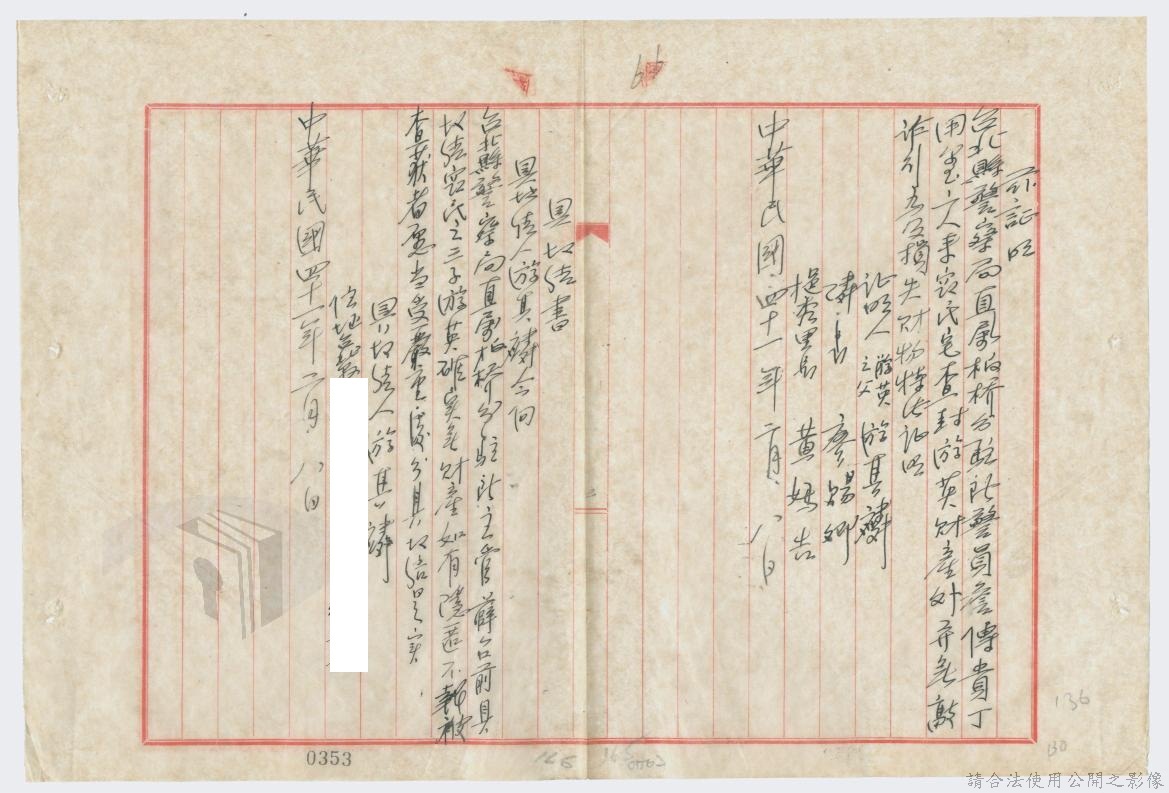 證明
台北縣警察局直屬板橋分駐所警員詹傳貴丁
用 六人來窃氏宅查封游英財產外并無敲
詐引 及損失財物特此証明
証明人 游英之父 游其麟
鄰長 廖賜卿
里長 黃媽吉
中華民國四十一年二月八日
具切結書
具切結人游其麟今向
台北縣警察局直屬板橋分駐所主官薛台前具
切結窃氏之三子游英確實無財產如有隱匿不報被
查获者愿当受嚴重處分具切結是实
具切結人游其麟
住址
中華民國四十一年二月八日
0353
136
130
請合法使用公開之影像